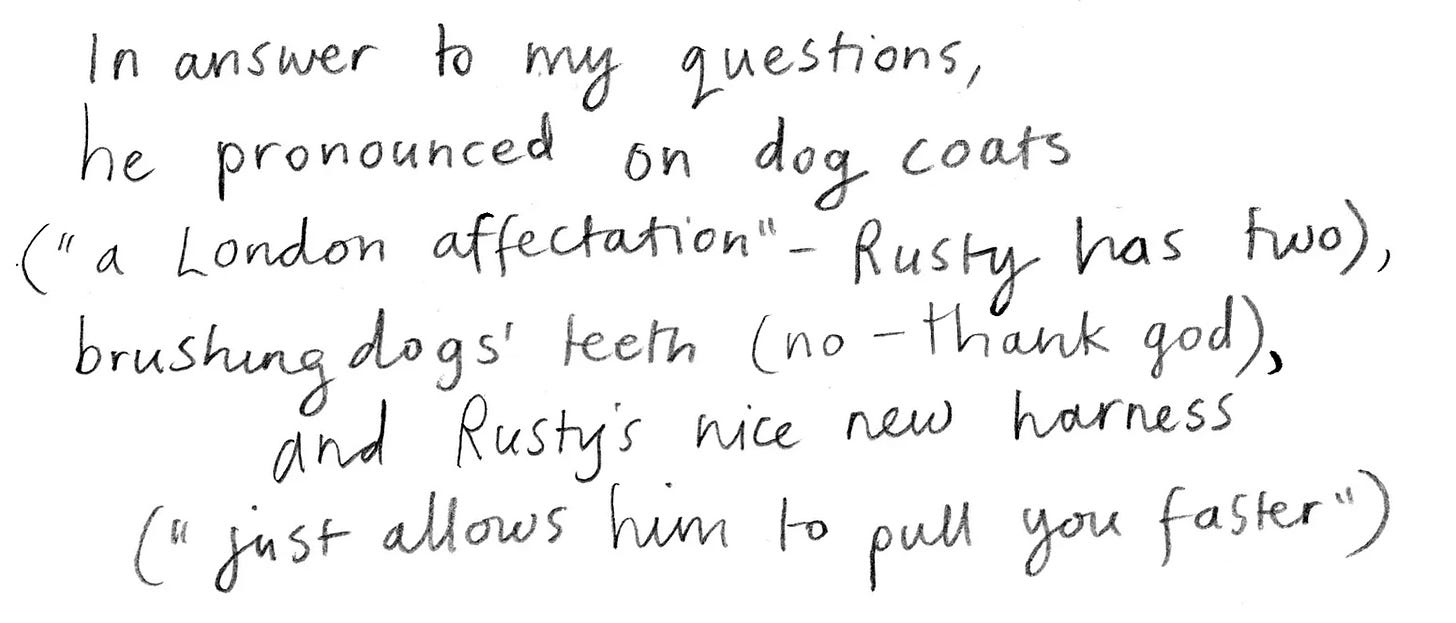 In answer to my questions,
he pronounced on dog coats
("a London affectation" – Rusty has two),
brushing dogs' teeth (no – thank god),
and Rusty's nice new harness
("just allows him to pull you faster")